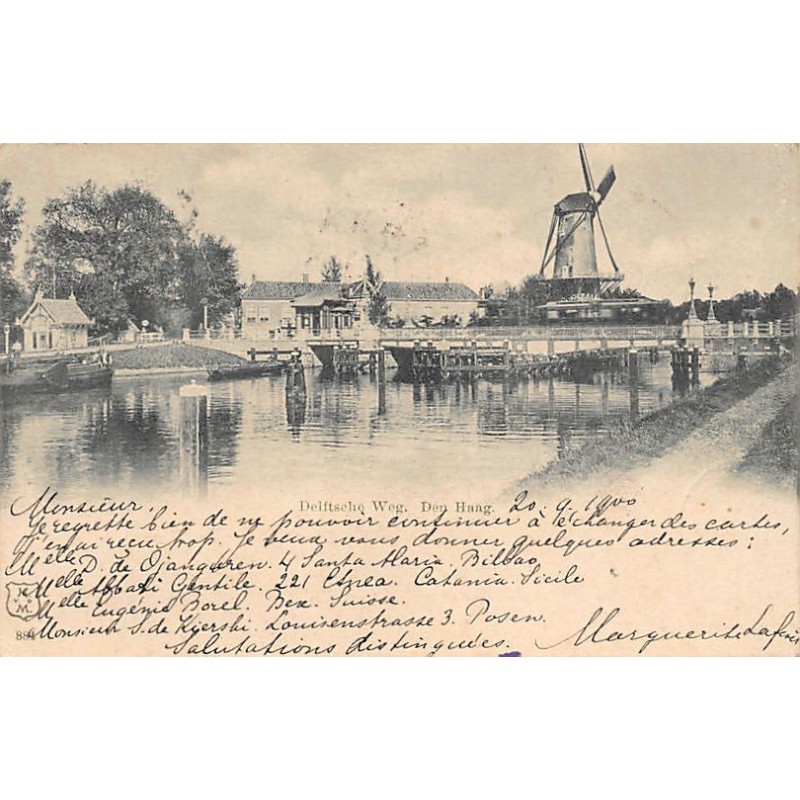 Delftsche Weg. Den Haag.
20.9.1900
Monsieur,
Je regrette bien de ne pouvoir continuer à échanger des cartes,
j'en ai reçu trop. Je veux vous donner quelques adresses:
Melle D. de Ojanguren. 4 Santa Maria. Bilbao
Melle Abbati Gentile. 221 Etnea. Catania. Sicile
Melle Eugénie Borel. Bex. Suisse.
Monsieur S. de Kjerski. Louisenstrasse 3. Posen.
Salutations distinguées.
Marguerite